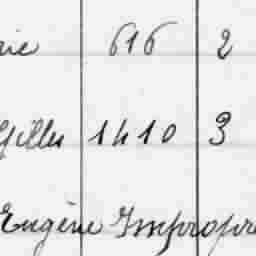 rie 616 2
Gilles 1410 3
Eugène Impropre